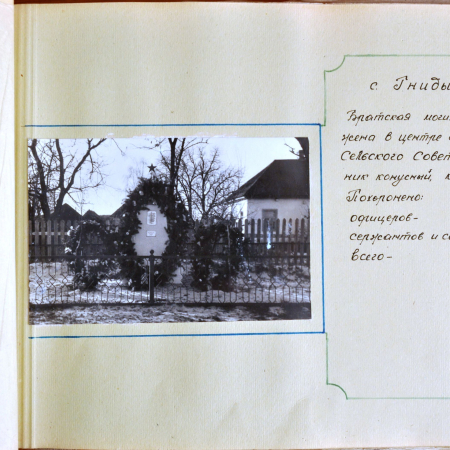 с. Гниды
Братская моги
жена в центре
Сельского Совет
ник конусный,
Похоронено:
офицеров-
сержантов и со
всего-